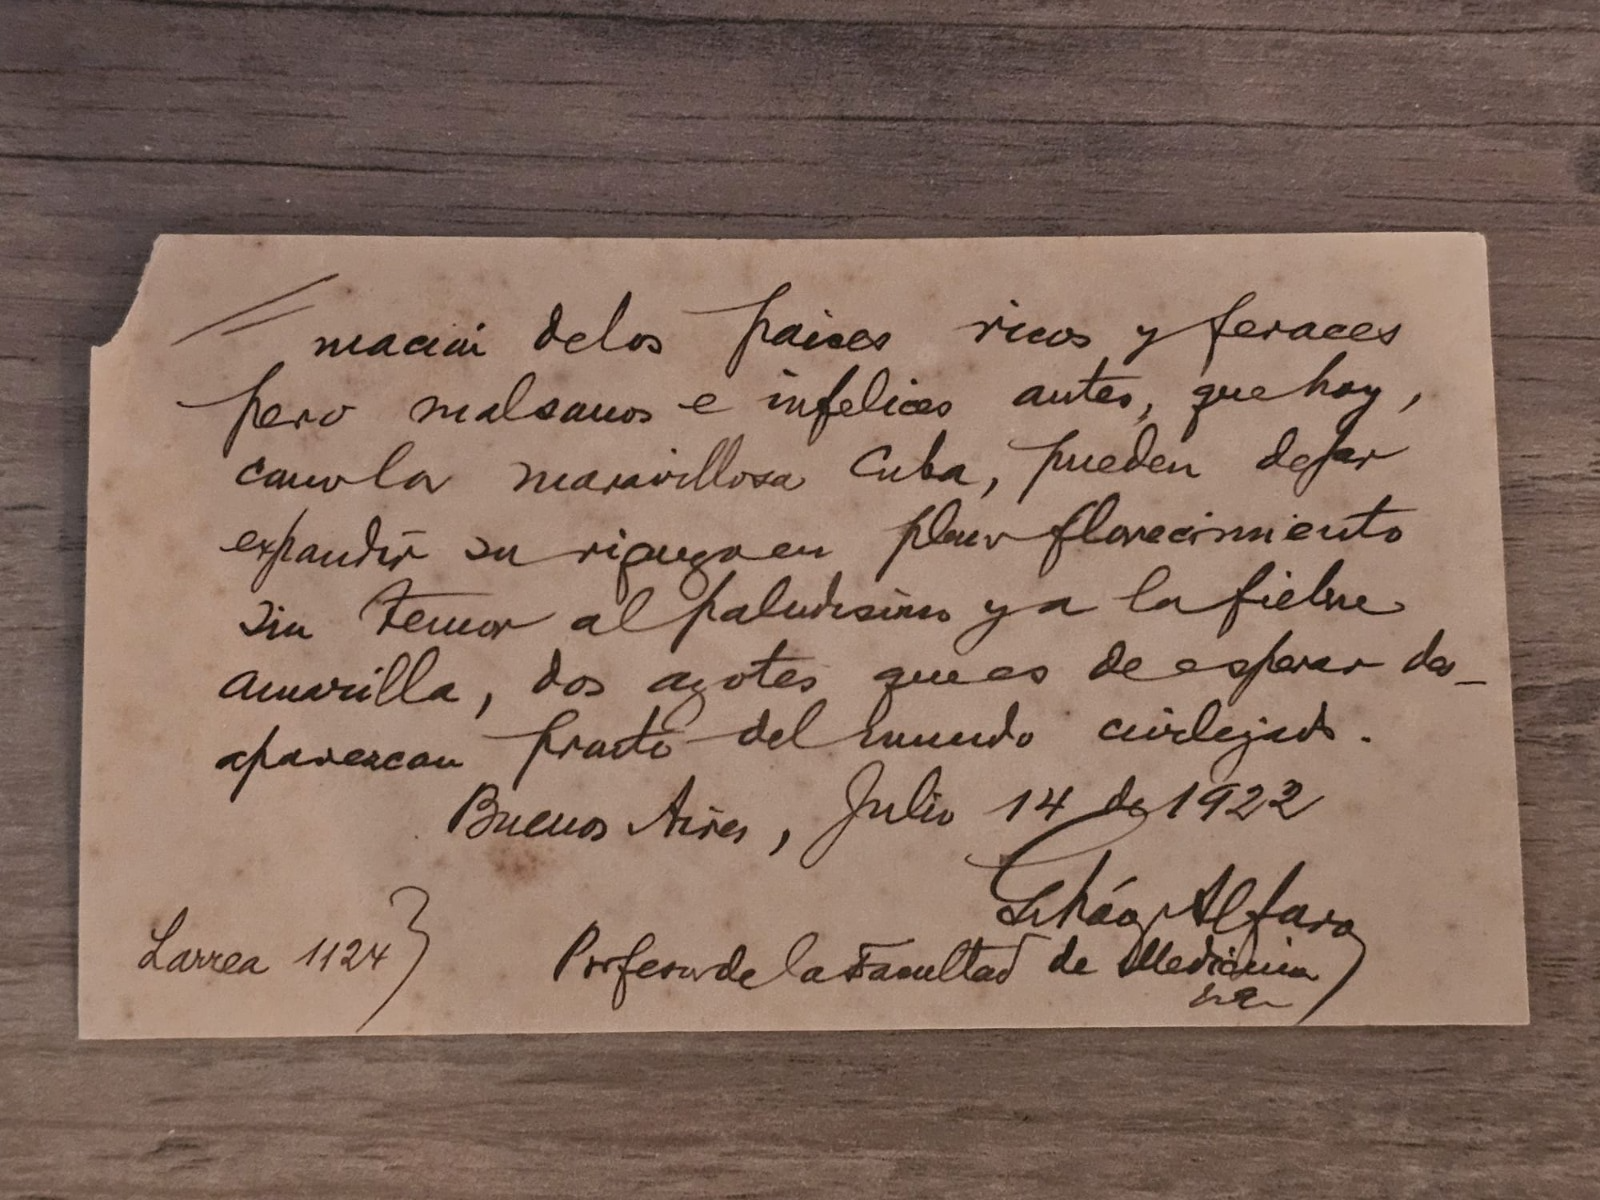 mación de los paises ricos y feraces
pero malsanos e infelices antes, que hoy,
como la maravillosa Cuba, pueden dejar
expandir su riqueza en pleno florecimiento
sin temor al paludismo y a la fiebre
amarilla, dos azotes que es de esperar des-
aparezcan pronto del mundo civilizado.
Buenos Aires, Julio 14 de 1922
Aráoz Alfaro
Larrea 1124
Profesor de la Facultad de Medicina